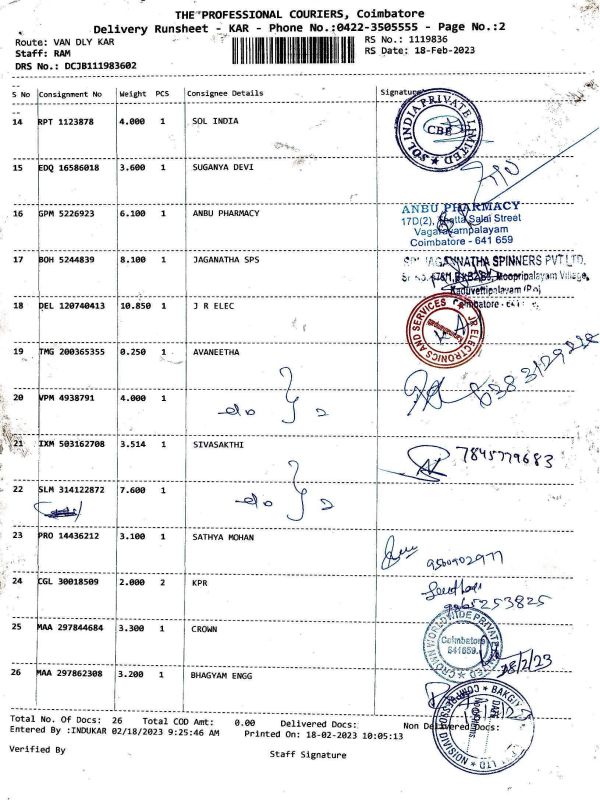 THE PROFESSIONAL COURIERS, Coimbatore
Delivery Runsheet - KAR - Phone No.:0422-3505555 - Page No.:2
Route: VAN DLY KAR
RS No.: 1119836
Staff: RAM
RS Date: 18-Feb-2023
DRS No.: DCJB111983602
S No Consignment No Weight PCS Consignee Details Signature
14 RPT 1123878 4.000 1 SOL INDIA
SOL INDIA PRIVATE LIMITED
CBE
15 EDQ 16586018 3.600 1 SUGANYA DEVI
16 GPM 5226923 6.100 1 ANBU PHARMACY
ANBU PHARMACY
17D(2), Salai Street
Vagarayampalayam
Coimbatore - 641 659
17 BOH 5244839 8.100 1 JAGANATHA SPS
JAGANNATHA SPINNERS PVT LTD.
Moopripalayam Village,
Kaduvettipalayam (P.o)
Coimbatore
18 DEL 120740413 10.850 1 J R ELEC
JR ELECTRONICS AND SERVICES
19 TMG 200365355 0.250 1 AVANEETHA
20 VPM 4938791 4.000 1
do } 2
21 IXM 503162708 3.514 1 SIVASAKTHI
7845779683
22 SLM 314122872 7.600 1
do } 2
23 PRO 14436212 3.100 1 SATHYA MOHAN
9500902977
24 CGL 30018509 2.000 2 KPR
9865253825
25 MAA 297844684 3.300 1 CROWN
CROWN WORLDWIDE PRIVATE LIMITED
Coimbatore
641659.
18/2/23
26 MAA 297862308 3.200 1 BHAGYAM ENGG
COMPRESSOR DIVISION
DATE
Total No. Of Docs: 26 Total COD Amt: 0.00 Delivered Docs: Non Delivered Docs:
Entered By :INDUKAR 02/18/2023 9:25:46 AM Printed On: 18-02-2023 10:05:13
Verified By Staff Signature